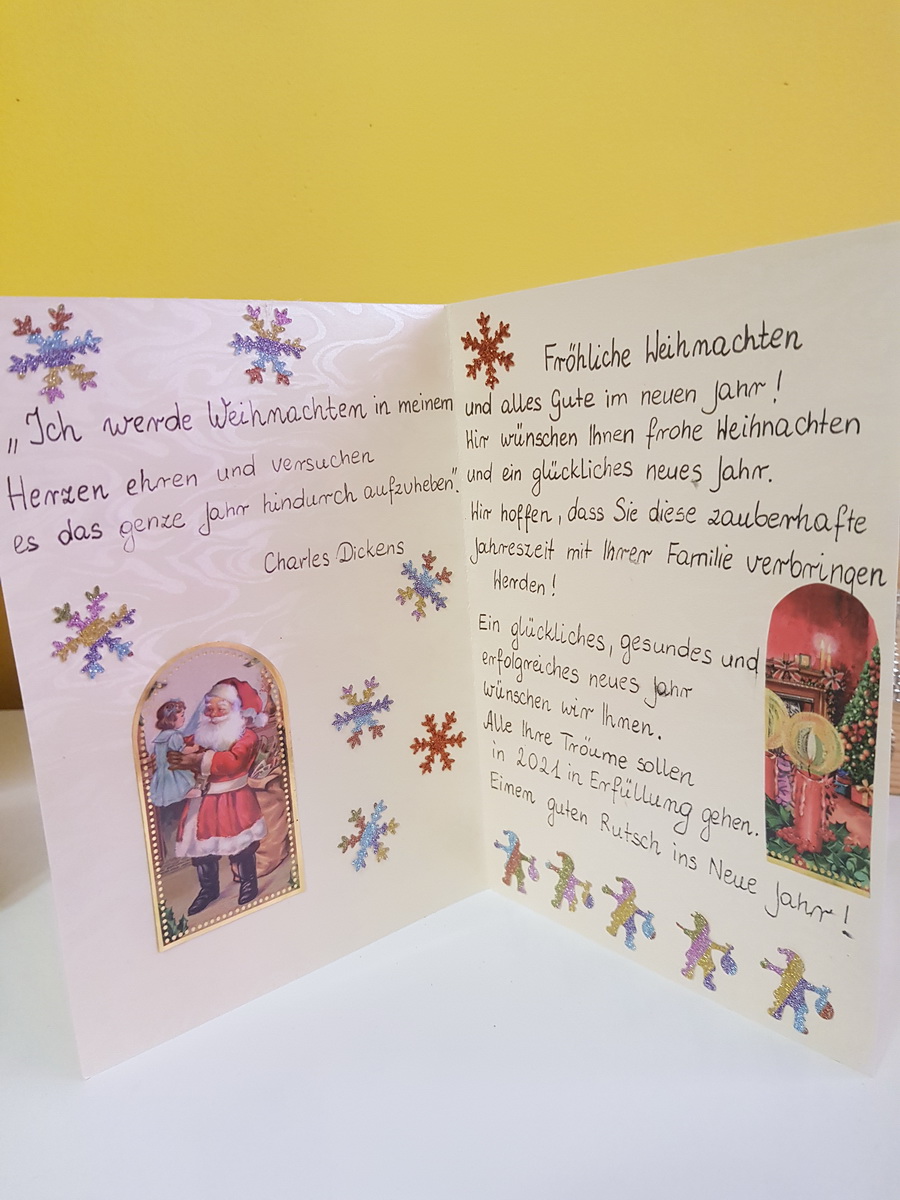 „Ich werde Weihnachten in meinem
Herzen ehren und versuchen
es das genze Jahr hindurch aufzuheben".
Charles Dickens
Fröhliche Weihnachten
und alles Gute im neuen Jahr!
Wir wünschen Ihnen frohe Weihnachten
und ein glückliches neues Jahr.
Wir hoffen, dass Sie diese zauberhafte
Jahreszeit mit Ihrer Familie verbringen
Werden!
Ein glückliches, gesundes und
erfolgreiches neues Jahr
wünschen wir Ihnen.
Alle Ihre Tröume sollen
in 2021 in Erfüllung gehen.
Einem guten Rutsch ins Neue Jahr!